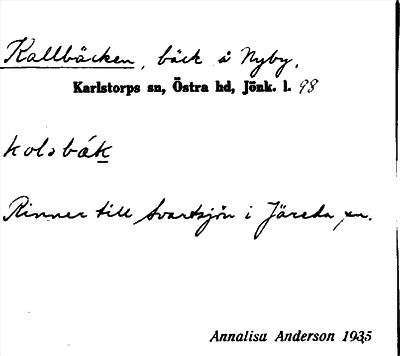 Kallbäcken, bäck å Nyby.
Karlstorps sn, Östra hd, Jönk. l. 98
koləbák
Rinner till Svartsjön i Järeda sn.
Annalisa Anderson 1935